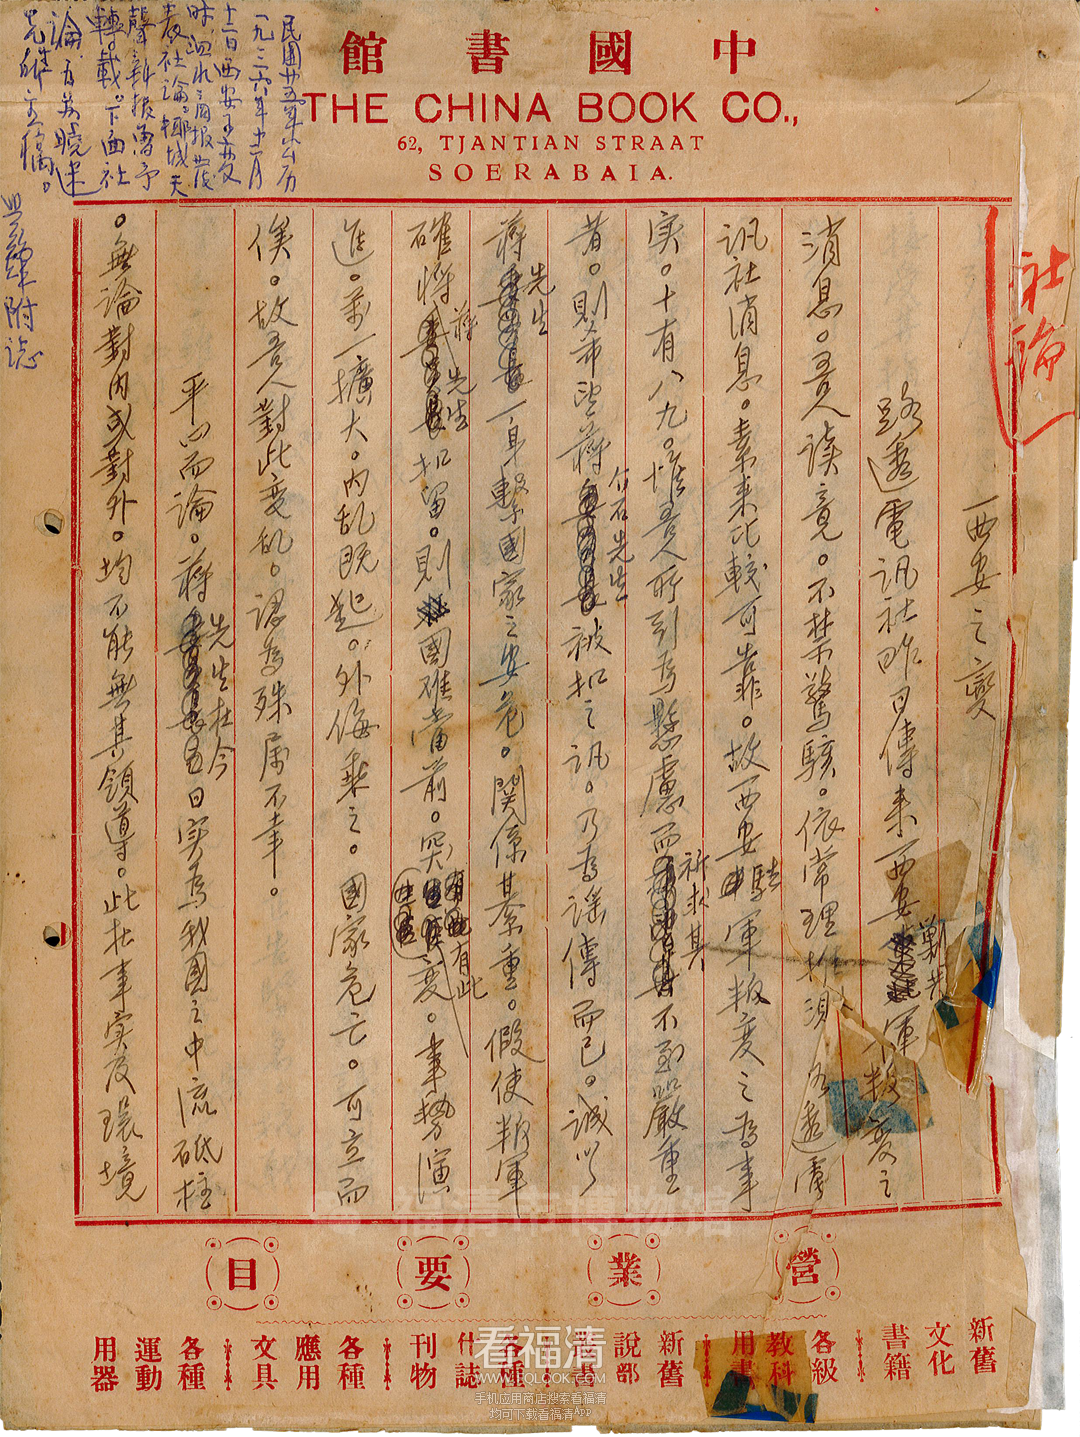 中國書館
THE CHINA BOOK CO.,
62, TJANTIAN STRAAT
SOERABAIA.
民国廿五年公历
一九三六年十二月
十二日西安事变
时泗水商报
表社论椰城天
聲新报
轉载。下面社
論为吴晓
先
附誌
社論
西安之變
路透電訊社昨日傳来西安軍叛变之
消息。吾人读竟。不禁驚駭。依常理推
訊社消息。素来比較可靠。故西安駐軍叛变之為事
实。十有八九。惟吾人所引為懸慮而祈求其不至嚴重
者。則希望蔣介石先生被扣之訊。乃為谣傳而已。誠以
蔣先生一身繫國家之安危。関係綦重。假使叛軍
確将蔣先生扣留。則國难當前。突有此变。事勢演
進。萬一擴大。内乱既起。外侮乘之。國家危亡。可立而
俟。故吾人對此变乱。認為殊属不幸。
平心而論。蔣先生在今日实為我國之中流砥柱
。無論對内或對外。均不能無其領導。此在事实及環境
營業要目
新舊
文化
書籍
各級
教科
用書
新舊
說部
叢書
各種
什誌
刊物
各種
應用
文具
各種
運動
用器
福清市博物馆
看福清
WWW.FQLOOK.COM
手机应用商店搜索看福清
均可下载看福清App